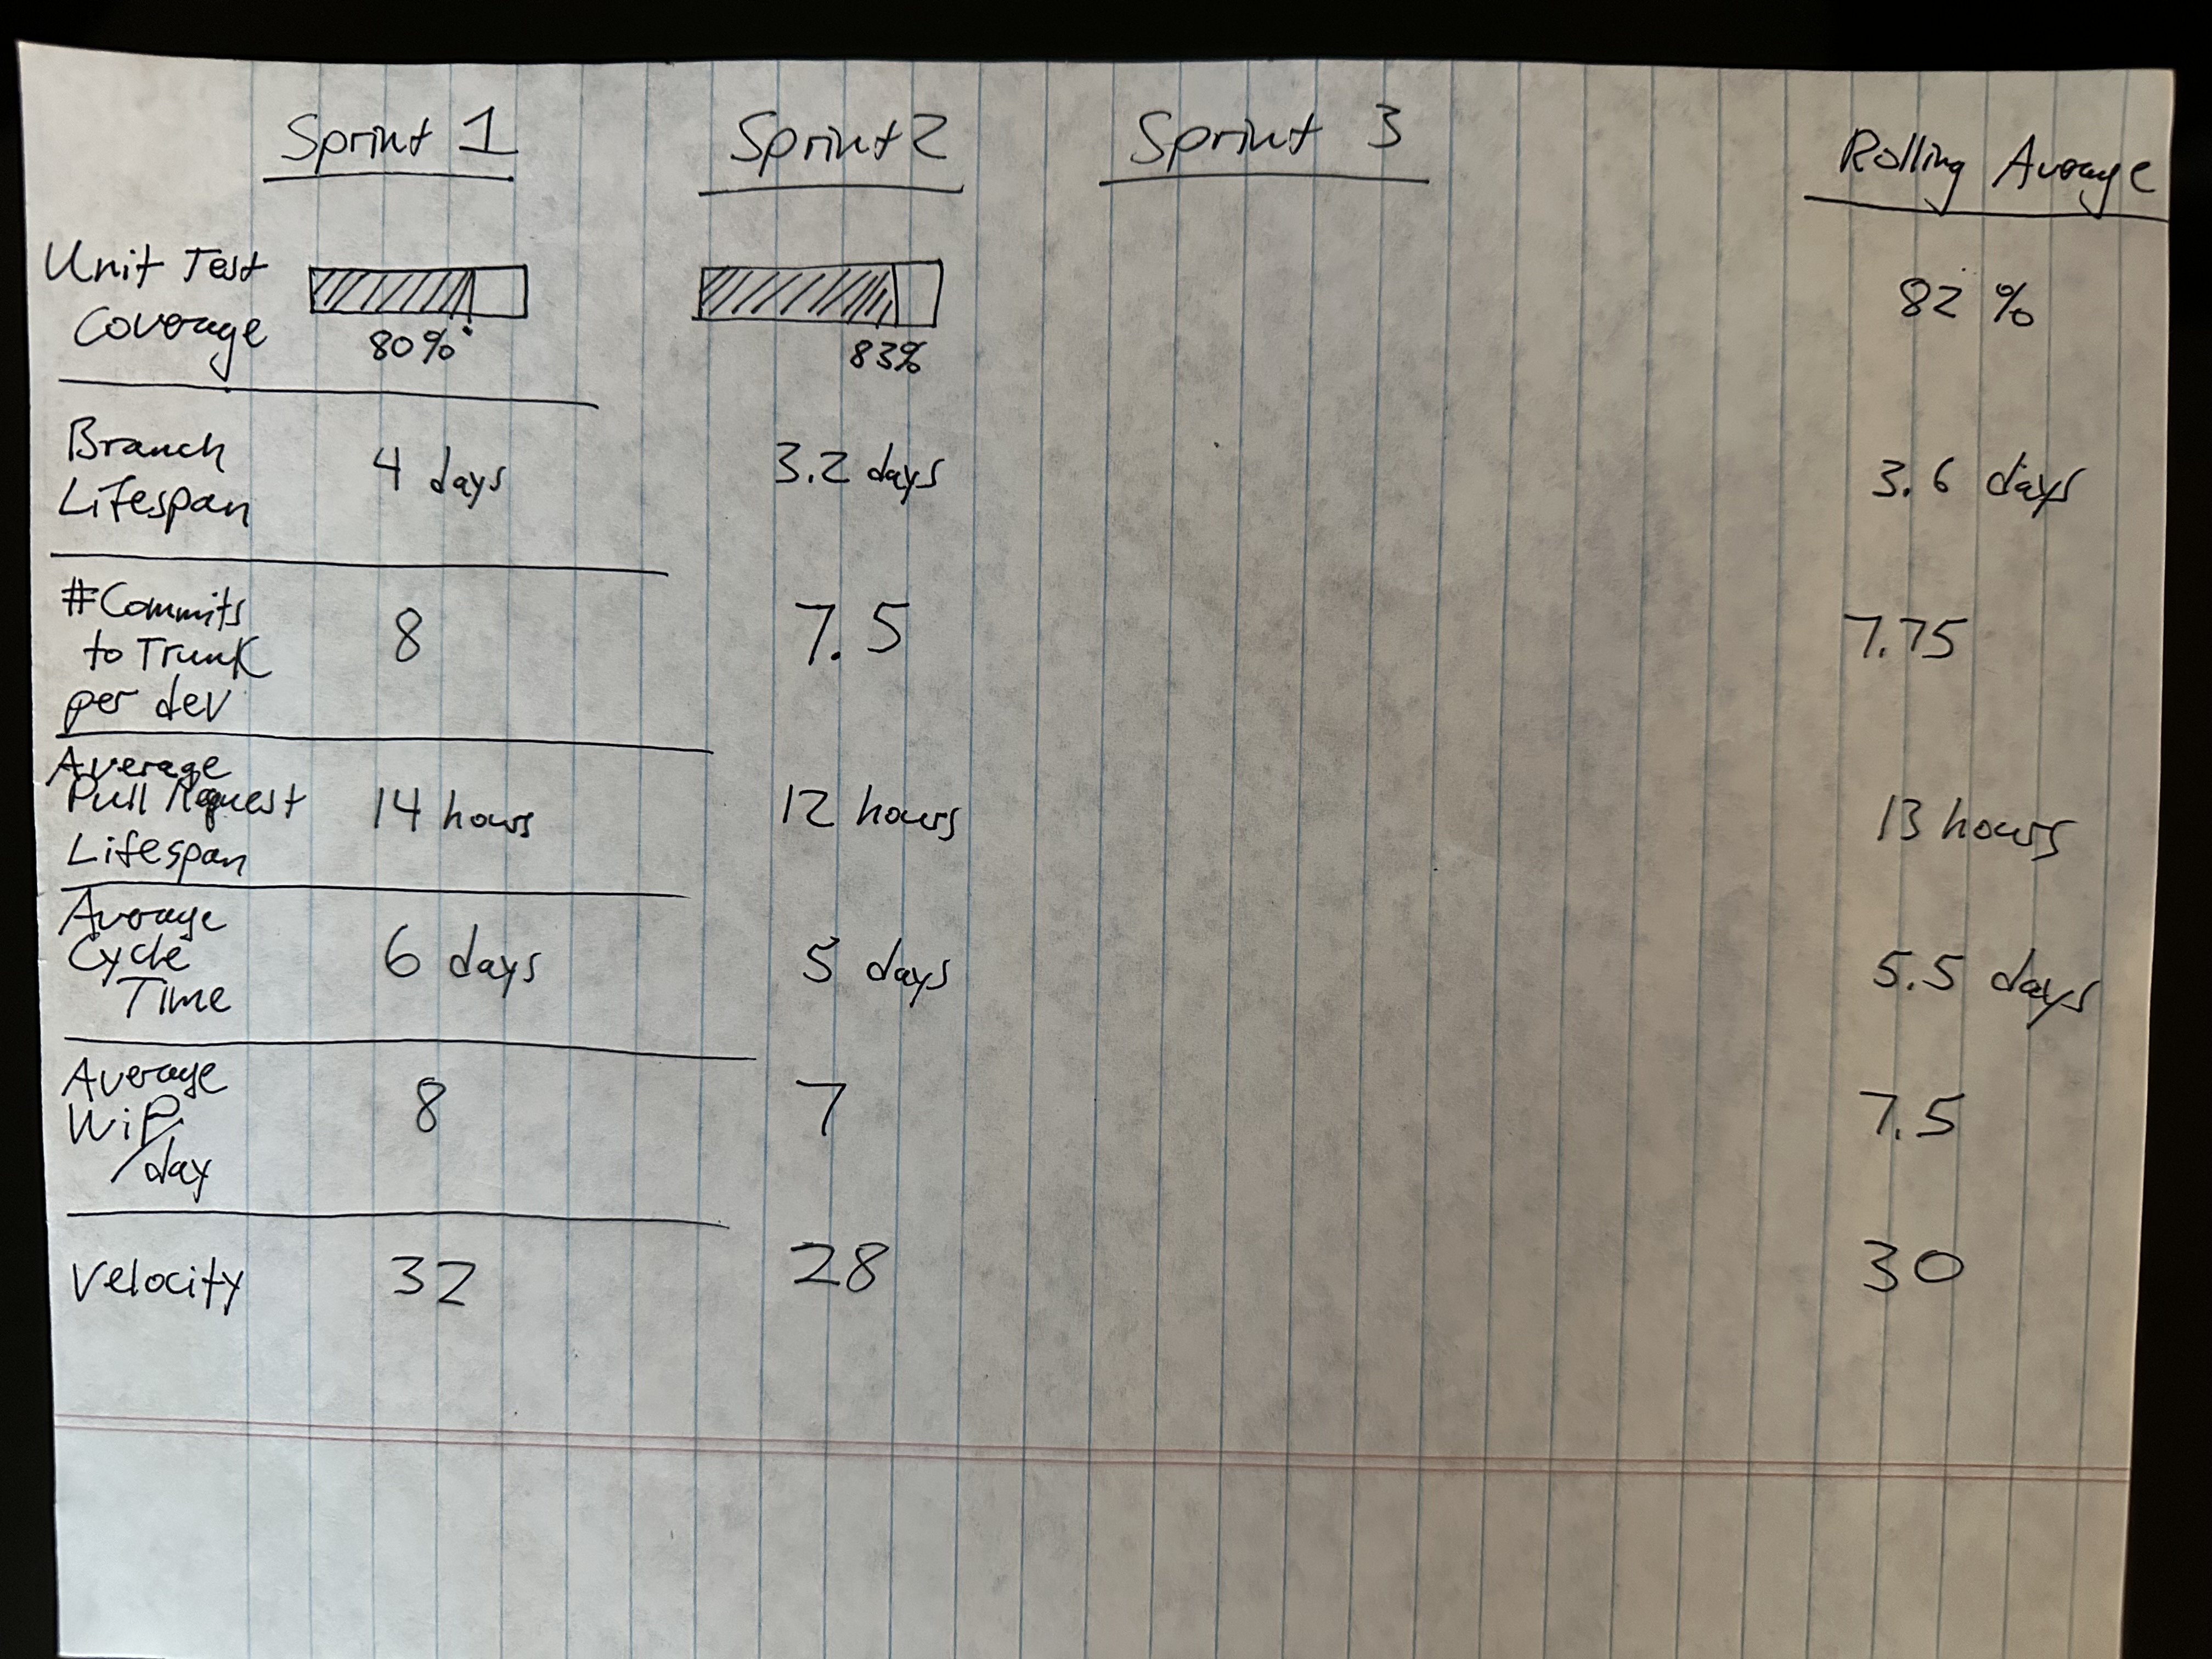 Sprint 1 Sprint 2 Sprint 3 Rolling Average
Unit Test
Coverage
80% 83% 82%
Branch
Lifespan
4 days 3.2 days 3.6 days
#Commits
to Trunk
per dev
8 7.5 7.75
Average
Pull Request
Lifespan
14 hours 12 hours 13 hours
Average
Cycle
Time
6 days 5 days 5.5 days
Average
WiP/
day
8 7 7.5
Velocity 32 28 30